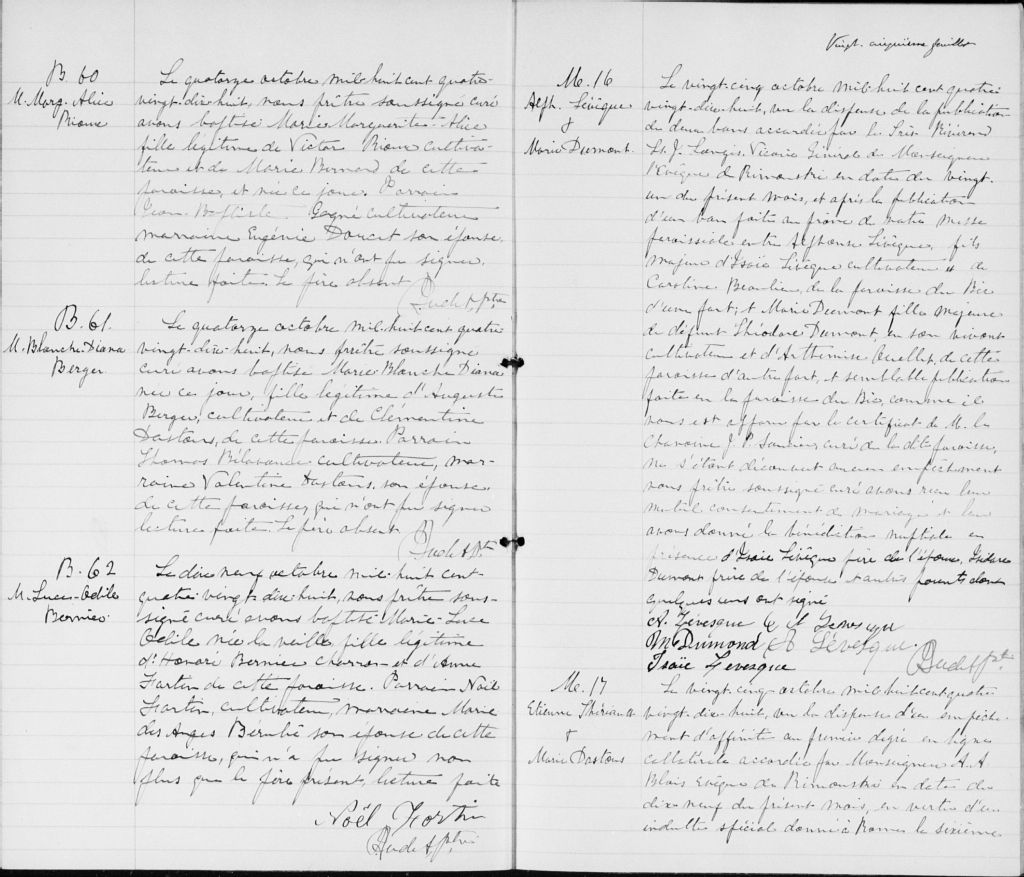 B. 60
M. Marg. Alice
Rioux
Le quatorze octobre mil-huit cent quatre-
vingt-dix-huit, nous prêtre soussigné curé
avons baptisé Marie Marguerite-Alice
fille légitime de Victor Rioux cultiva-
teur et de Marie Bernard de cette
paroisse, et née ce jour. Parrain
Jean-Baptiste Gagné cultivateur
marraine Eugénie Doucet son épouse,
de cette paroisse, qui n'ont pu signer.
lecture faite. Le père absent
B. 61.
M. Blanche Diana
Berger
Le quatorze octobre mil-huit cent quatre
vingt-dix-huit, nous prêtre soussigné
curé avons baptisé Marie Blanche Diana
née ce jour, fille légitime d'Auguste
Berger, cultivateur et de Clémentine
Dastous, de cette paroisse. Parrain
Thomas Bélavance cultivateur, mar-
raine Valentine Dastous, son épouse
de cette paroisse, qui n'ont pu signer
lecture faite. Le père absent
B. 62
M. Luce-Odile
Bernier
Le dix neuf octobre mil-huit cent-
quatre-vingt-dix-huit, nous prêtre sous-
signé curé avons baptisé Marie-Luce
Odile née la veille, fille légitime
d'Honoré Bernier charron et d'Anne
Fortin de cette paroisse. Parrain Noël
Fortin, cultivateur, marraine Marie
des Anges Bérubé son épouse de cette
paroisse, qui n'a pu signer non
plus que le père présent, lecture faite
Noël Fortin
Vingt-cinquième feuillet
M. 16
Alph. Lévêque
&
Marie Dumont.
Le vingt-cinq octobre mil-huit cent quatre
vingt-dix-huit, vu la dispense de la publication
de deux bans accordée par le Très Révérend
Ls J. Langis Vicaire Général de Monseigneur
l'Evêque de Rimouski en date du vingt-
un du présent mois, et après la publication
d'un ban faite au prône de notre messe
paroissiale entre Alphonse Lévêque, fils
majeur d'Isaïe Lévêque cultivateur et de
Caroline Beaulieu, de la paroisse du Bic
d'une part; et Marie Dumont fille majeure
de défunt Théodore Dumont, en son vivant
cultivateur et d'Arthémise Ouellet, de cette
paroisse d'autre part, et semblable publication
faite en la paroisse du Bic, comme il
nous est apparu par le certificat de M. le
Chanoine J. P. curé de la dite paroisse,
ne s'étant découvert aucun empêchement
nous prêtre soussigné curé avons reçu leur
mutuel consentement de mariage et leur
avons donné la bénédiction nuptiale en
présence d'Isaïe Lévêque père de l'époux, Isidore
Dumont frère de l'épouse et autres parents dont
quelques uns ont signé
A. Lévesque
M Dumond B Lévesque
Isaïe Levesque
M. 17
Etienne Thériault
&
Marie Dastous
Le vingt-cinq octobre mil huit cent quatre
vingt-dix-huit, vu la dispense d'un empêche-
ment d'affinité au premier degré en ligne
collatérale accordée par Monseigneur A. A
Blais Evêque de Rimouski en date du
dix neuf du présent mois, en vertu d'un
indulte spécial donné à Rome le sixième